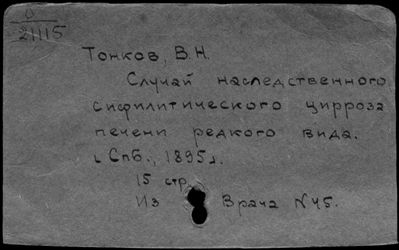 0
21115
Тонков, В.Н.
Случай наследственного
сифилитического цирроза
печени редкого вида.
Спб., 1895г.
15 стр.
Из Врача N45.